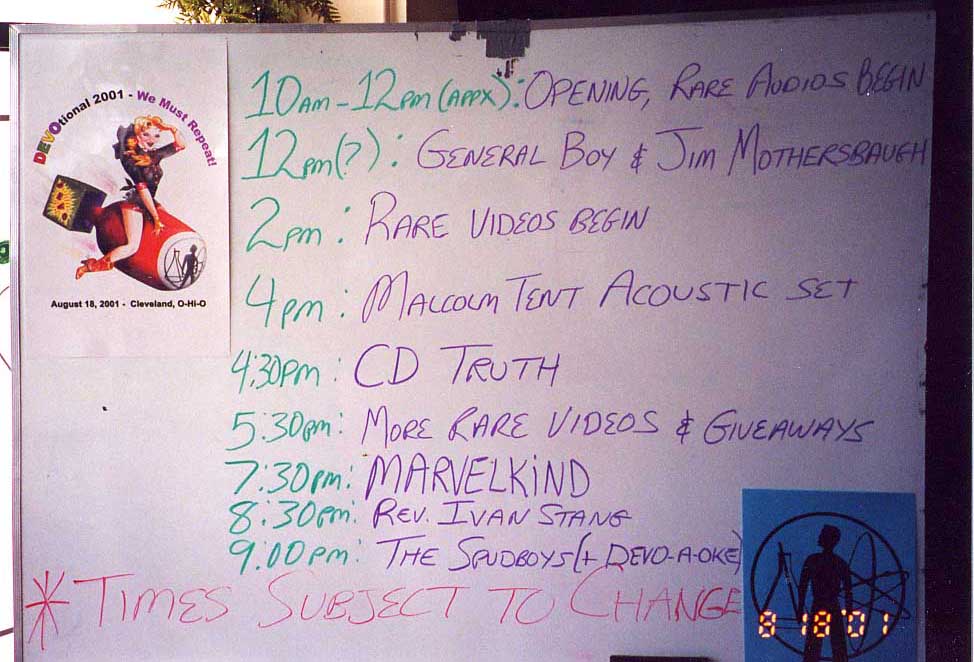 DEVOtional 2001 - We Must Repeat!
August 18, 2001 - Cleveland, O-Hi-O
10AM-12PM (APPX): OPENING, RARE AUDIOS BEGIN
12PM(?): GENERAL BOY & JIM MOTHERSBAUGH
2PM: RARE VIDEOS BEGIN
4PM: MALCOLM TENT ACOUSTIC SET
4:30PM: CD TRUTH
5:30PM: MORE RARE VIDEOS & GIVEAWAYS
7:30PM: MARVELKiND
8:30PM: REV. IVAN STANG
9:00PM: THE SPUDBOYS (+ DEVO-A-OKE)
* TIMES SUBJECT TO CHANGE
8 18 '01